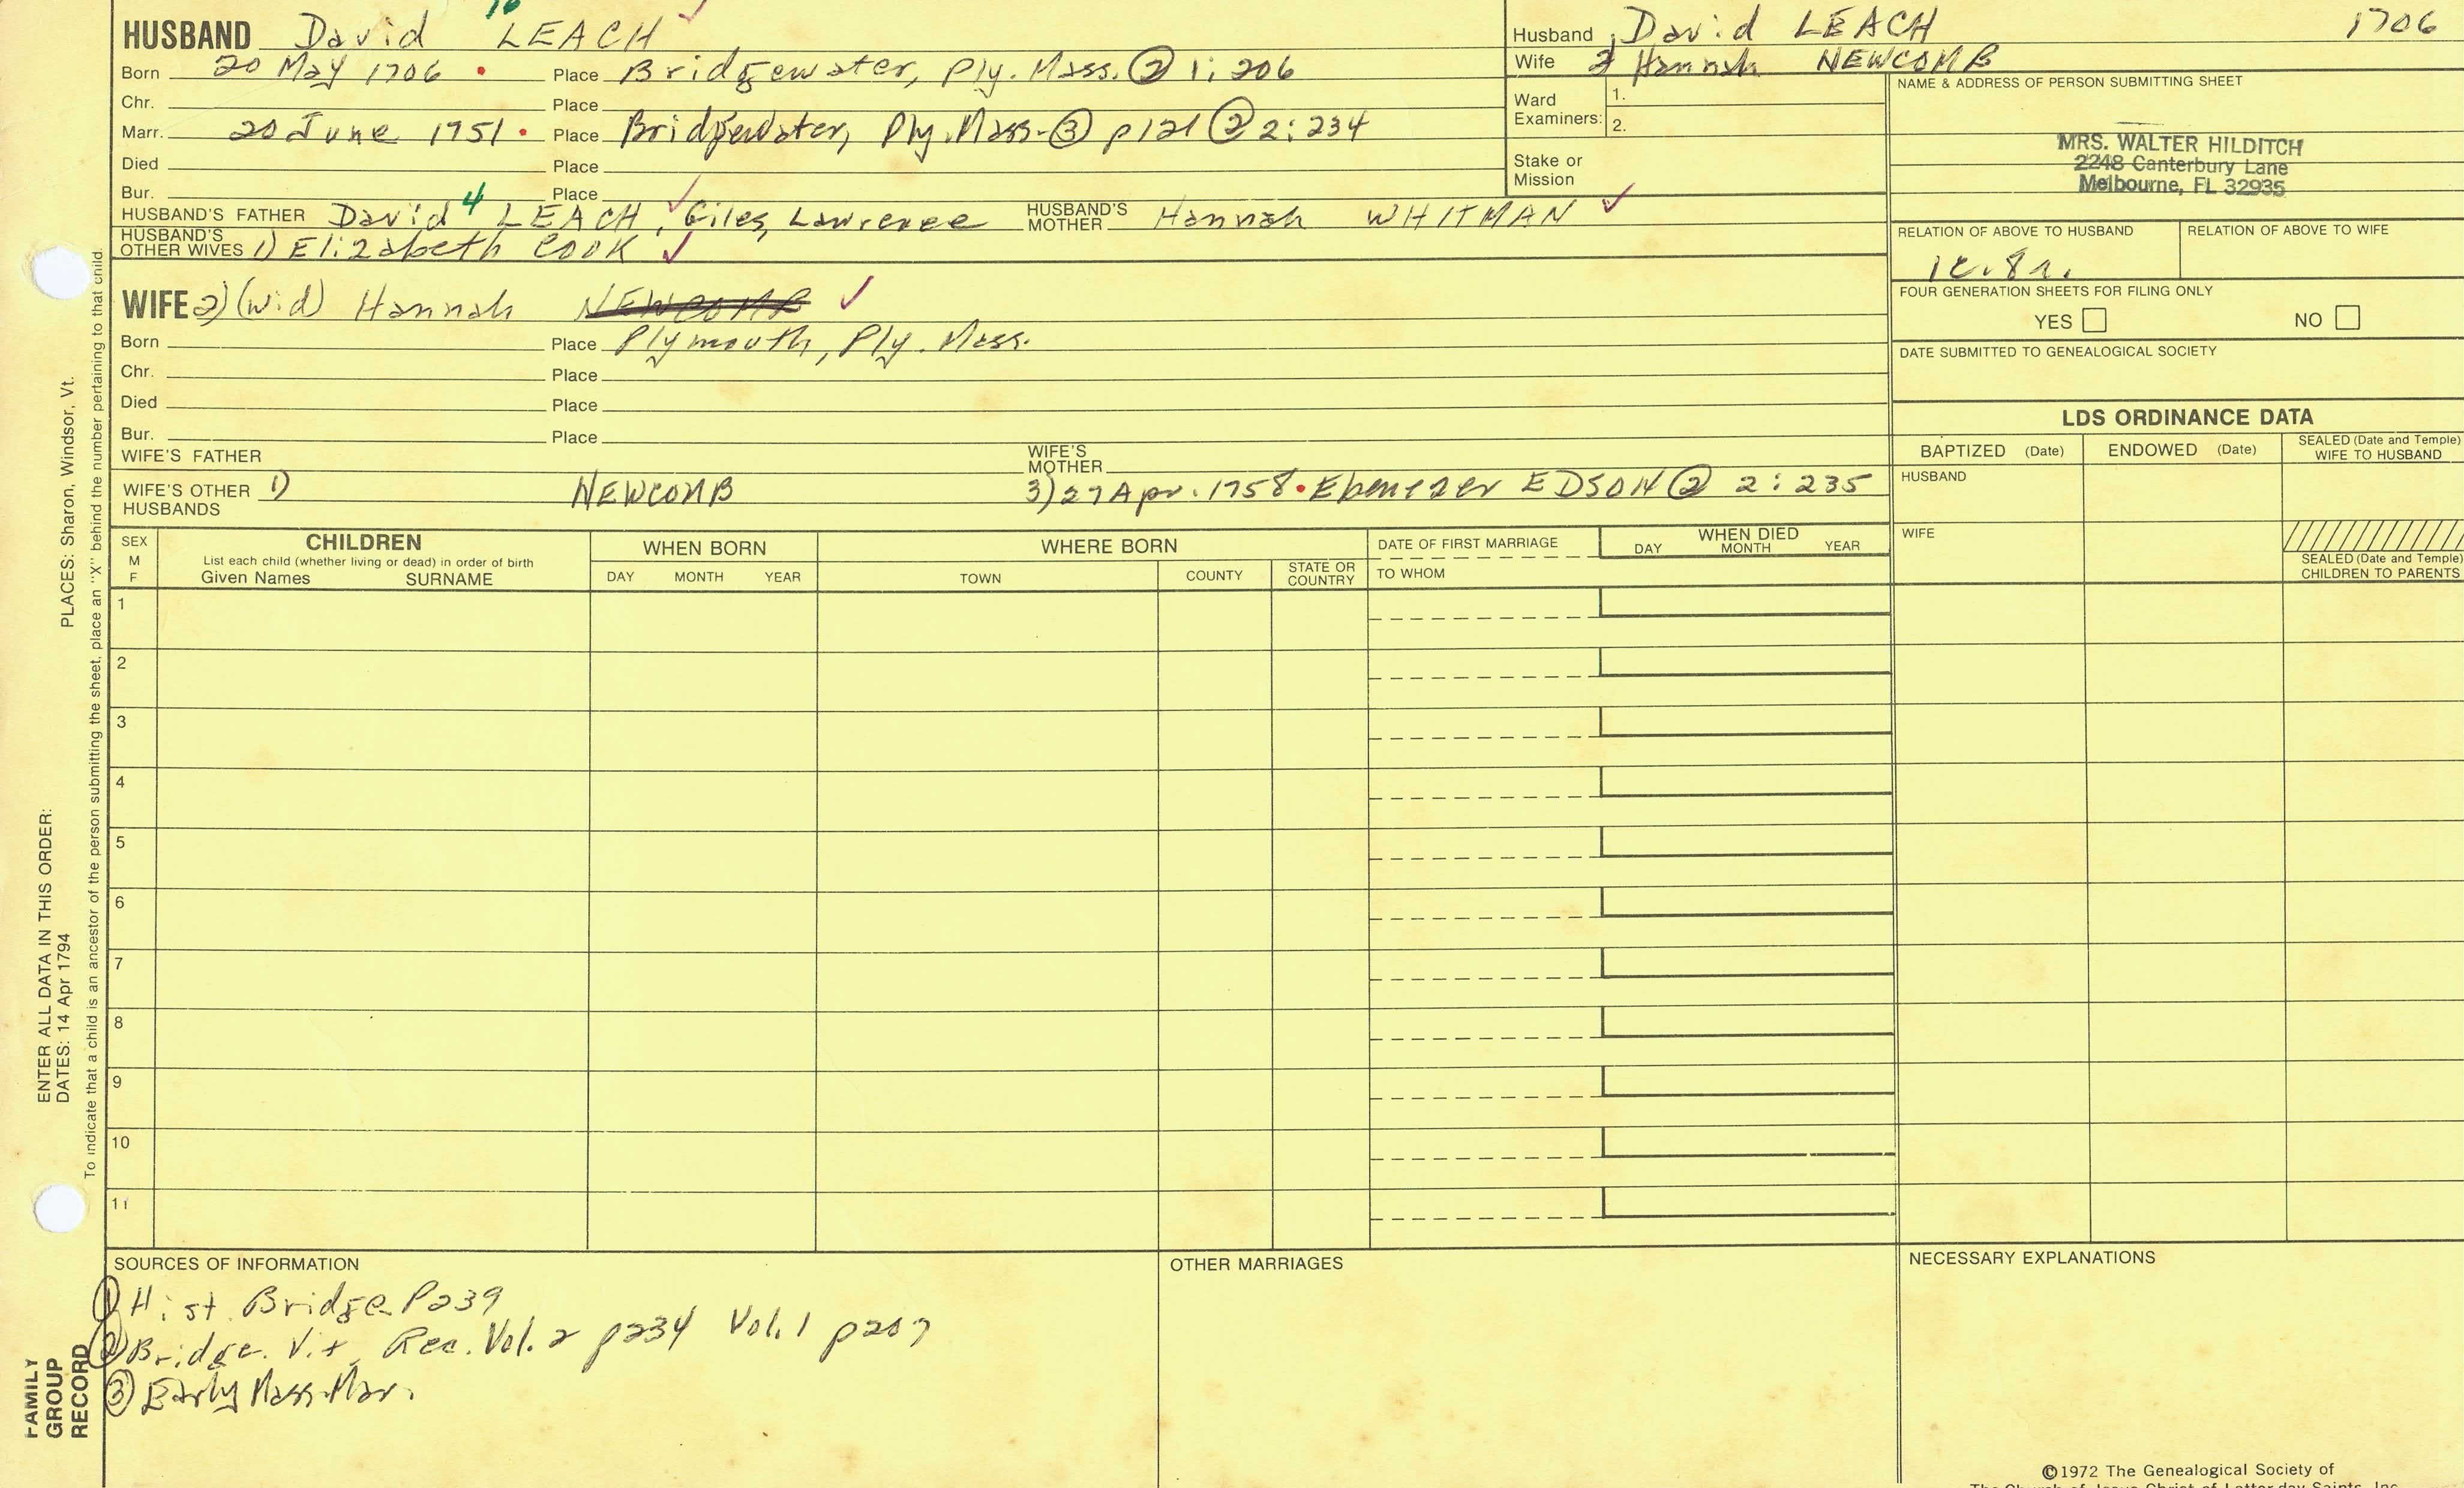 HUSBAND David LEACH
Born 20 May 1706 • Place Bridgewater, Ply. Mass. ② 1:206
Chr. Place
Marr. 20 June 1751 • Place Bridgewater, Ply. Mass. ③ p121 ② 2:234
Died Place
Bur. Place
HUSBAND'S FATHER David 4 LEACH, Giles, Lawrence HUSBAND'S MOTHER Hannah WHITMAN ✓
HUSBAND'S OTHER WIVES 1) Elizabeth COOK ✓
WIFE 2) (wid) Hannah NEWCOMB ✓
Born Place Plymouth, Ply. Mass.
Chr. Place
Died Place
Bur. Place
WIFE'S FATHER WIFE'S MOTHER
WIFE'S OTHER HUSBANDS 1) NEWCOMB 3) 27 Apr. 1758 • Ebenezer EDSON ② 2:235
Husband David LEACH 1706
Wife 2 Hannah NEWCOMB
Ward Examiners: 1.
2.
Stake or Mission
NAME & ADDRESS OF PERSON SUBMITTING SHEET
MRS. WALTER HILDITCH
2248 Canterbury Lane
Melbourne, FL 32935
RELATION OF ABOVE TO HUSBAND RELATION OF ABOVE TO WIFE
FOUR GENERATION SHEETS FOR FILING ONLY
YES NO
DATE SUBMITTED TO GENEALOGICAL SOCIETY
LDS ORDINANCE DATA
BAPTIZED (Date) ENDOWED (Date) SEALED (Date and Temple) WIFE TO HUSBAND
HUSBAND
WIFE
SEALED (Date and Temple) CHILDREN TO PARENTS
SEX M F
CHILDREN
List each child (whether living or dead) in order of birth
Given Names SURNAME
WHEN BORN
DAY MONTH YEAR
WHERE BORN
TOWN COUNTY STATE OR COUNTRY
DATE OF FIRST MARRIAGE
TO WHOM
WHEN DIED
DAY MONTH YEAR
1
2
3
4
5
6
7
8
9
10
11
SOURCES OF INFORMATION
① Hist. Bridge P239
② Bridge. Vit. Rec. Vol. 2 p234 Vol. 1 p207
③ Early Mass. Mar.
OTHER MARRIAGES
NECESSARY EXPLANATIONS
©1972 The Genealogical Society of
The Church of Jesus Christ of Latter-day Saints, Inc.
PLACES: Sharon, Windsor, Vt.
ENTER ALL DATA IN THIS ORDER:
DATES: 14 Apr 1794
To indicate that a child is an ancestor of the person submitting the sheet, place an "X" behind the number pertaining to that child.
FAMILY GROUP RECORD